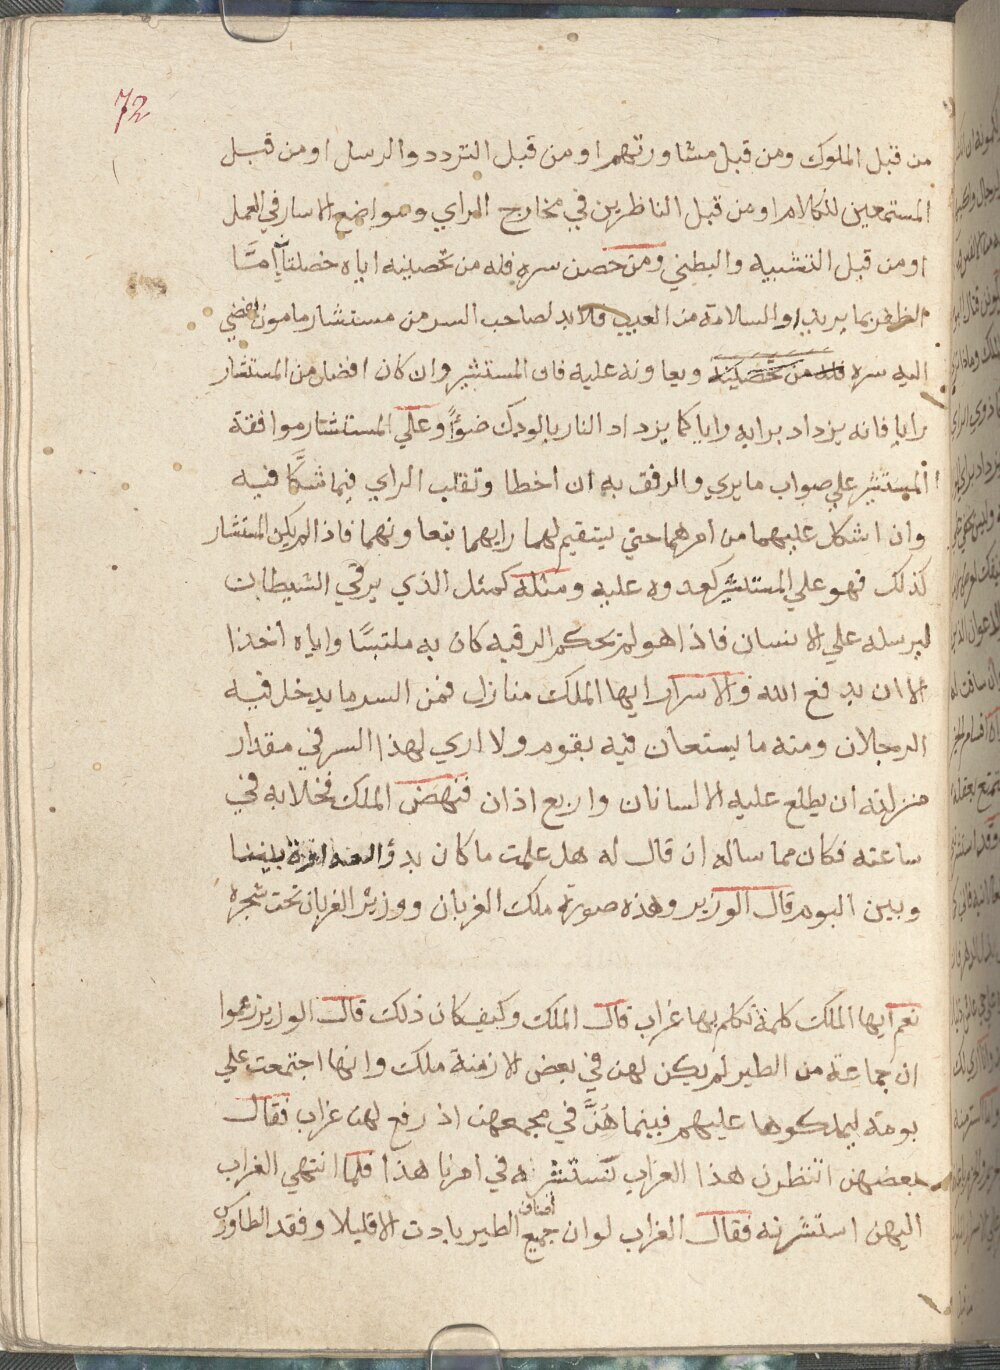 72
من قبل الملوك ومن قبل مشاورتهم او من قبل التردد والرسل او من قبل
المستمعين للكلام او من قبل الناظرين في مخارج الراي ومواضع الاسار في العمل
او من قبل التشبيه والبطني ومن حصن سره فله من تحصينه اياه خصلتان امَّا
الظفر بما يريد او السلامة من العيب فلا بد لصاحب السر من مستشار مامون يفضي
اليه سره فله من تحصينه ويعاونه عليه فان المستشير وان كان افضل من المستشار
رايا فانه يزداد برايه رايا كما يزداد النار بالودك ضوًا وعلي المستشار موافقة
المستشير علي صواب ما يري والرفق به ان اخطا وتقلب الراي فيما شكَّا فيه
وان اشكل عليهما من امرهما حتي يستقيم لهما رايهما بتعاونهما فاذا لم يكن المستشار
كذلك فهو علي المستشير كعدوه عليه ومثله كمثل الذي يرقي الشيطان
ليرسله علي الانسان فاذا هو لم يحكم الرقيه كان به ملتبسًا واياه اخذا
الا ان يدفع الله والاسرار ايها الملك منازل فمن السر ما يدخل فيه
الرجلان ومنه ما يستعان فيه بقوم ولا اري لهذا السر في مقدار
منزلته ان يطلع عليه الا لسانان واربع اذان فنهض الملك فخلا به في
ساعته فكان مما ساله ان قال له هل علمت ما كان بدؤ العداوة بيننا
وبين البوم قال الوزير وهذه صورة ملك الغربان ووزير الغربان تحت شجره
نعم ايها الملك كلمة تكلم بها غراب قال الملك وكيف كان ذلك قال الوزير زعموا
ان جماعة من الطير لم يكن لهن في بعض الازمنة ملك وانها اجتمعت علي
بومة ليملكوها عليهم فبينما هُنَّ في مجمعهن اذ رفع لهن غراب فقال
بعضهن انتظرن هذا الغراب نستشره في امرنا هذا فلما انتهي الغراب
اليهن استشرنه فقال الغراب لو ان جميع اصناف الطير بادت الا قليلا وفقد الطاوس